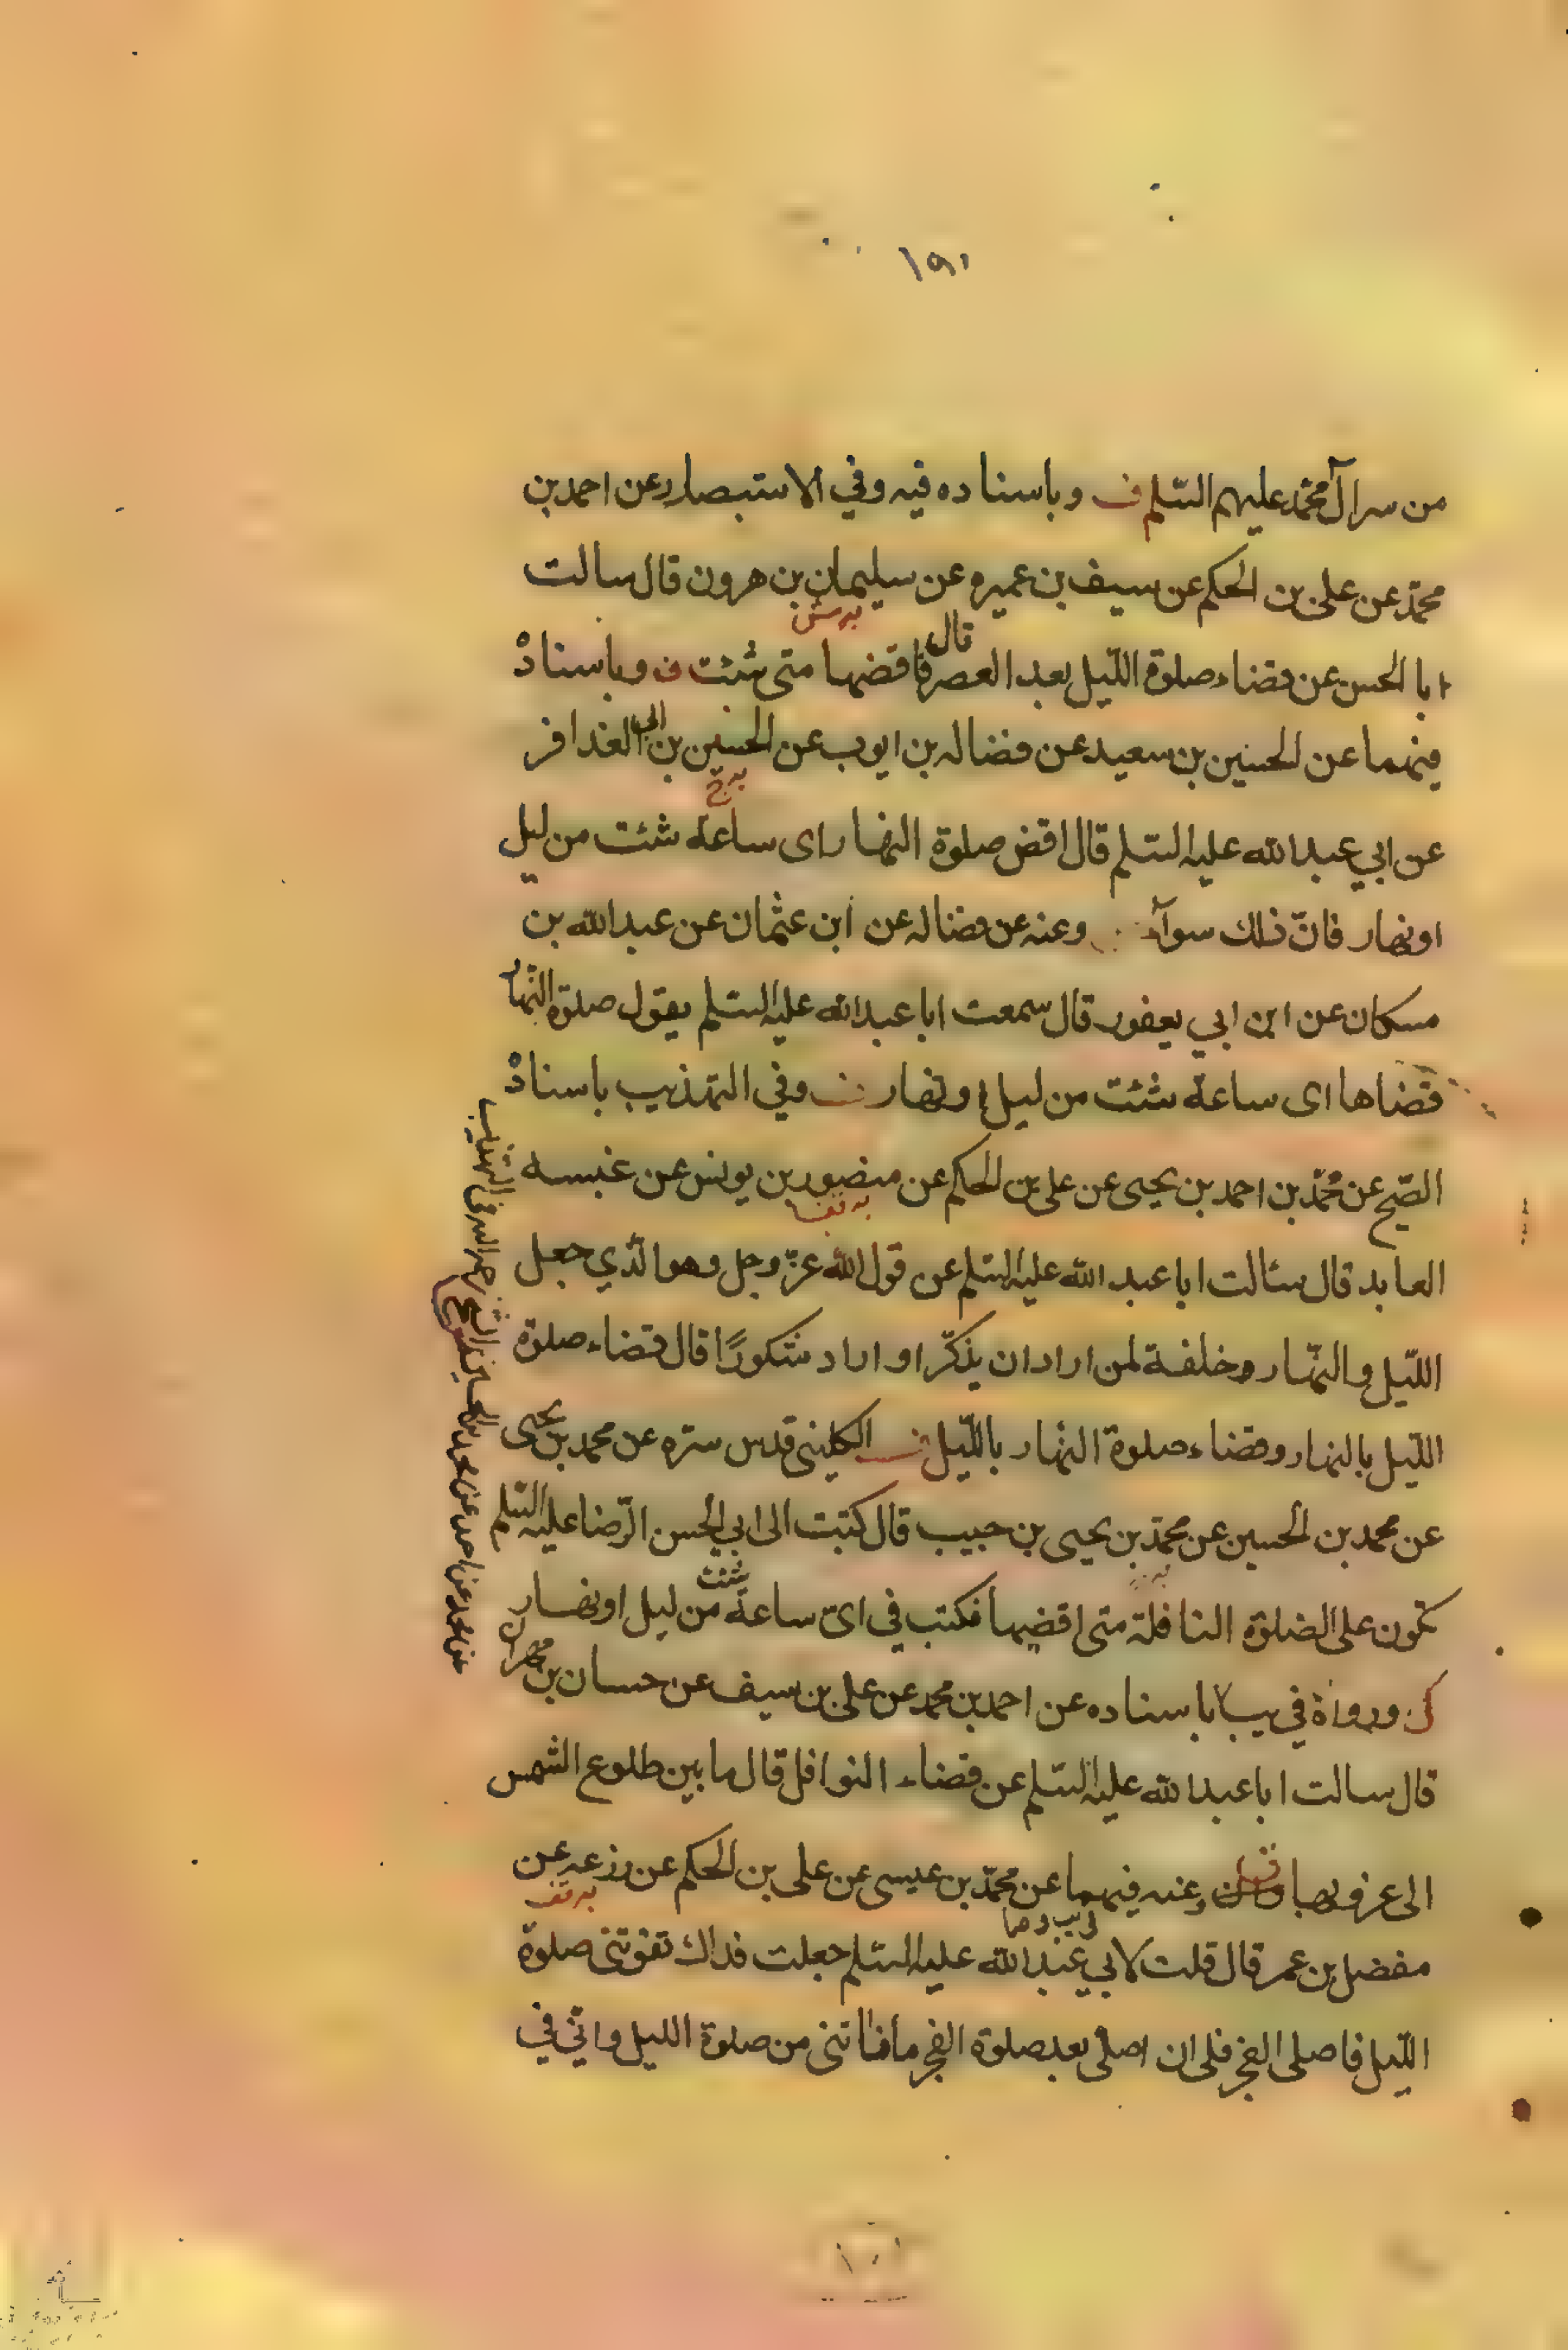 ١٩١
من سر آل محمّد عليهم السّلم ف وباسناده فيه وفي الاستبصار عن احمد بن
محمّد عن على بن الحكم عن سيف بن عميره عن سليمان بن هرون قال سالت
ابا الحسن عن قضاء صلوة اللّيل بعد العصر قال فاقضها متى شئت ف وباسناده
فيهما عن الحسين بن سعيد عن فضاله بن ايوب عن الحسين بن ابى الغدافر
عن ابي عبد الله عليه السّلم قال اقض صلوة النهار اى ساعة شئت من ليل
او نهار فانّ ذلك سوآء وعنه عن فضاله عن ابن عثمان عن عبد الله بن
مسكان عن ابن ابي يعفور قال سمعت ابا عبد الله عليه السّلم يقول صلوة النّهار
قضاها اى ساعة شئت من ليل او نهار ف وفي التهذيب باسناده
الصّحيح عن محمّد بن احمد بن يحيى عن على بن الحكم عن منصور بن يونس عن عنبسه
العابد قال سئالت ابا عبد الله عليه السّلم عن قول الله عزّ وجل وهو الّذي جعل
اللّيل والنّهار وخلفة لمن اراد ان يذكّر او اراد شكورًا قال قضاء صلوة
اللّيل بالنهار وقضاء صلوة النّهار باللّيل ف الكليني قدس سرّه عن محمد بن يحيى
عن محمد بن الحسين عن محمّد بن يحيى بن حبيب قال كتبت الى ابي الحسن الرّضا عليه السّلم
تكون على الصلوة النافلة متى اقضيها فكتب في اىّ ساعة شئت من ليل او نهار
كل ورواه في يب باسناده عن احمد بن محمد عن على بن سيف عن حسان بن مهران
قال سالت ابا عبد الله عليه السّلم عن قضاء النوافل قال ما بين طلوع الشمس
الى غروبها وعنه فيهما عن محمّد بن عيسى عن على بن الحكم عن زرعه عن
مفضل بن عمر قال قلت لابي عبد الله عليه السّلم جعلت فداك تفوتنى صلوة
اللّيل فاصلى الفجر فلى ان اصلّى بعد صلوة الفجر ما فاتنى من صلوة الليل وانّي في